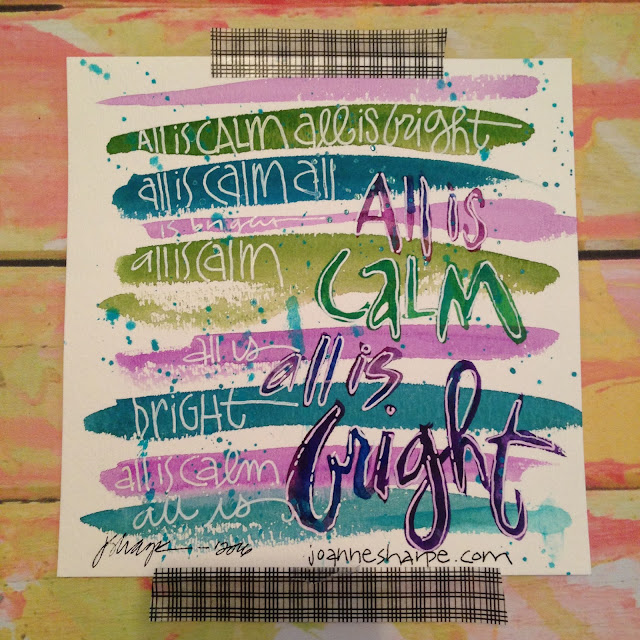 All is CALM all is bright
all is calm all
is bright
all is calm
all is
bright
all is calm
all is
All is
CALM
all is
bright
2016
joannesharpe.com